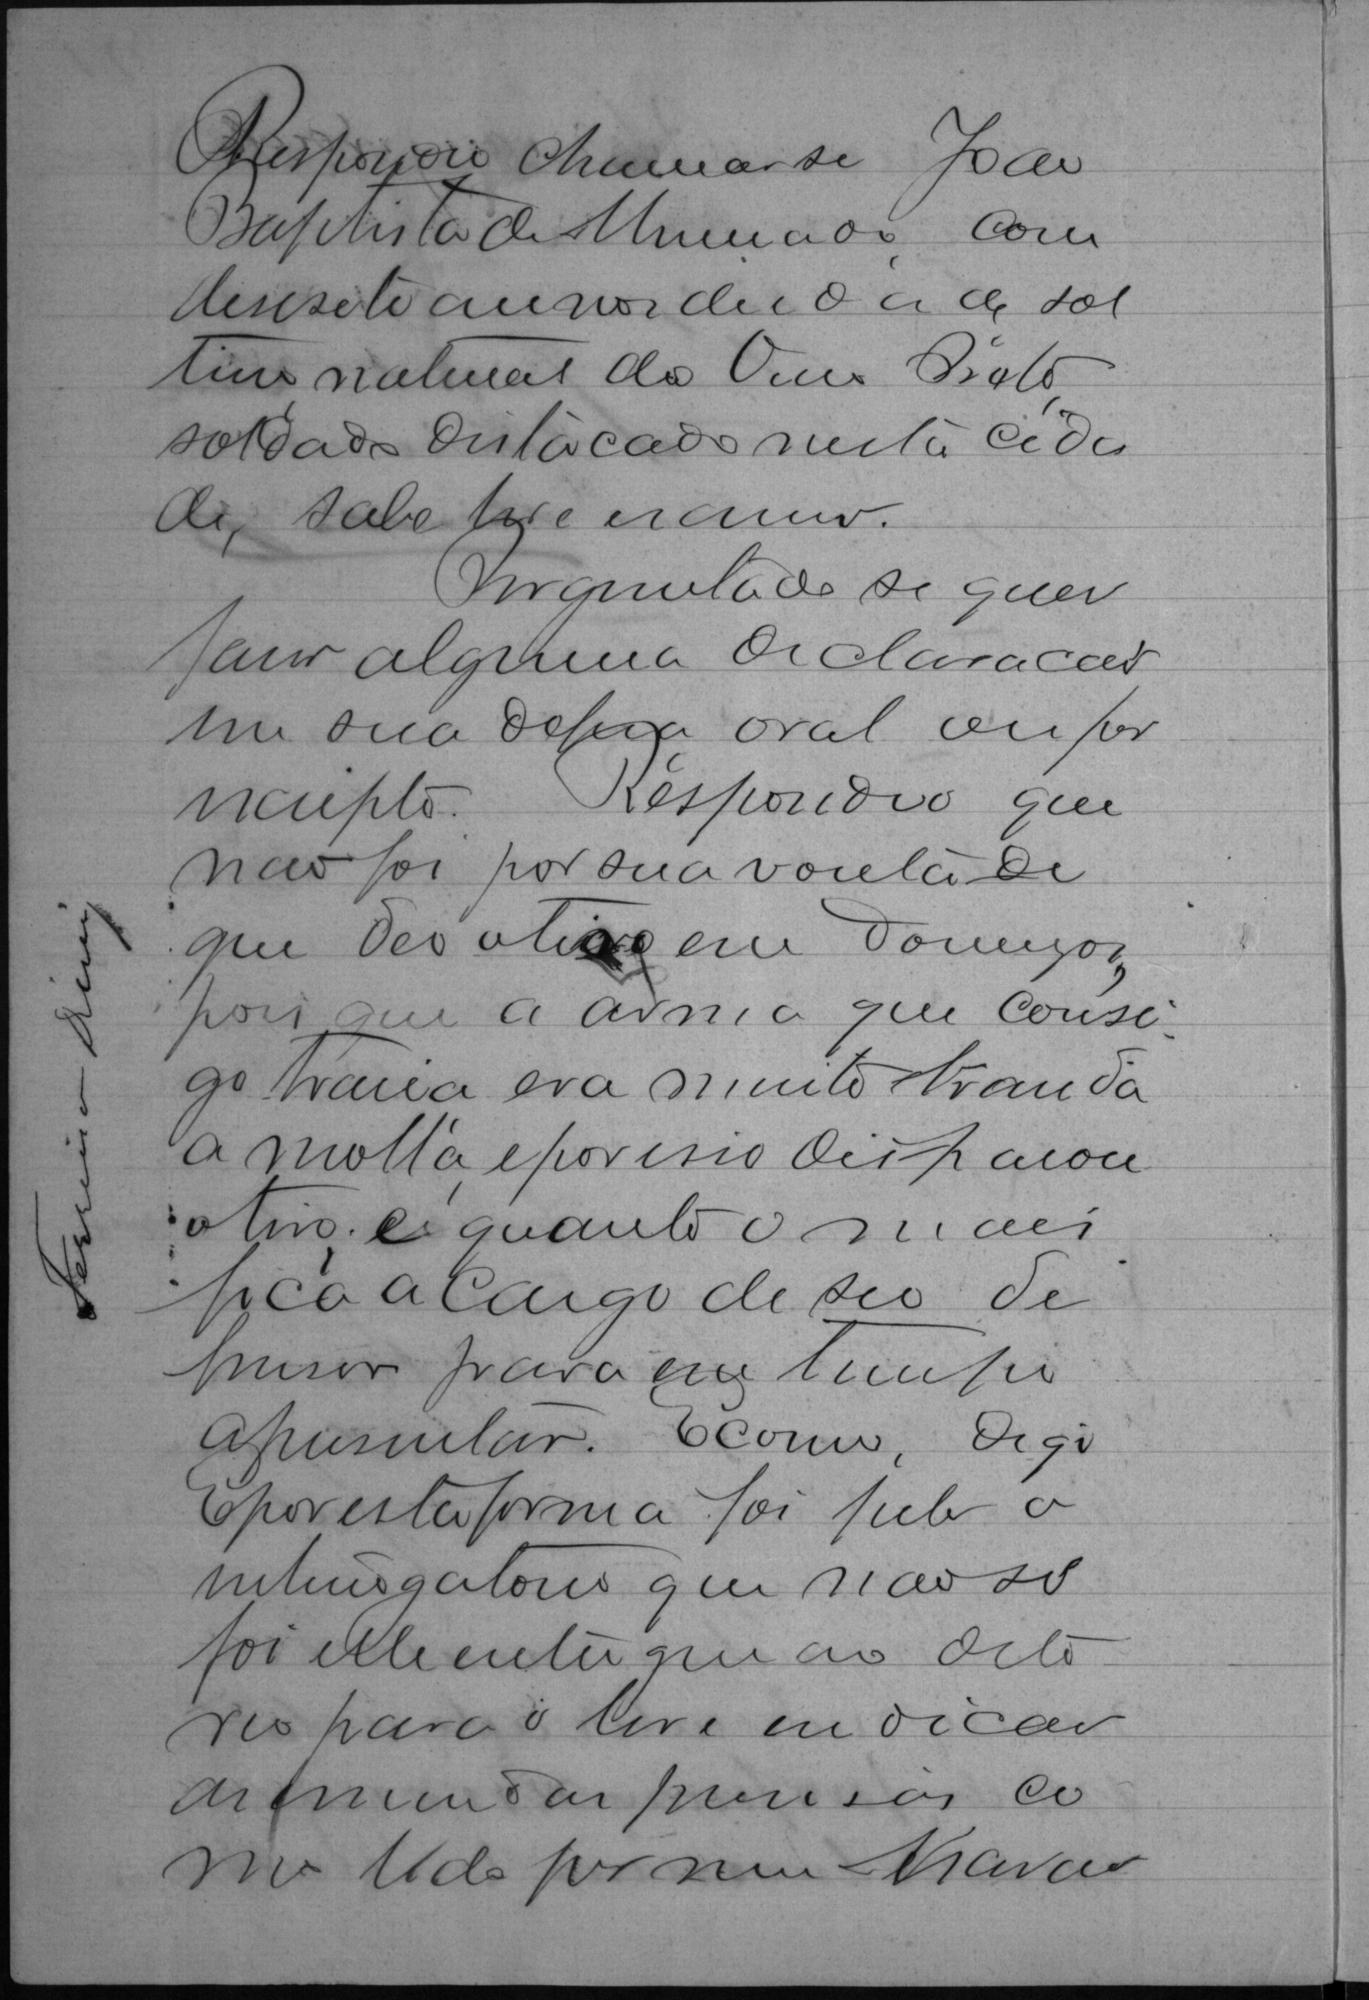 Respondeo chamar se Joao
Baptista de Almeida, com
desesete annos de idade sol
teiro, natural do Ouro Preto,
soldado distacado nesta cida
de, sabe ler e
Perguntado se quer
fazer alguma declaracao
em sua defesa oral ou por
escripto. Respondeo que
nao foi por sua vontade
que deo o tiro em Domingos,
pois que a arma que consi
go trazia era muito branda
a molla, e por isso disparou
o tiro. e quanto o mais
fica a cargo de seo de
fensor para em tempo
apresentar. E como, digo
E por esta forma foi feito o
interrogatorio que nao so
foi elle
reo para o ler e indicar
as emendas precisas co
mo lido por mim Escrivao